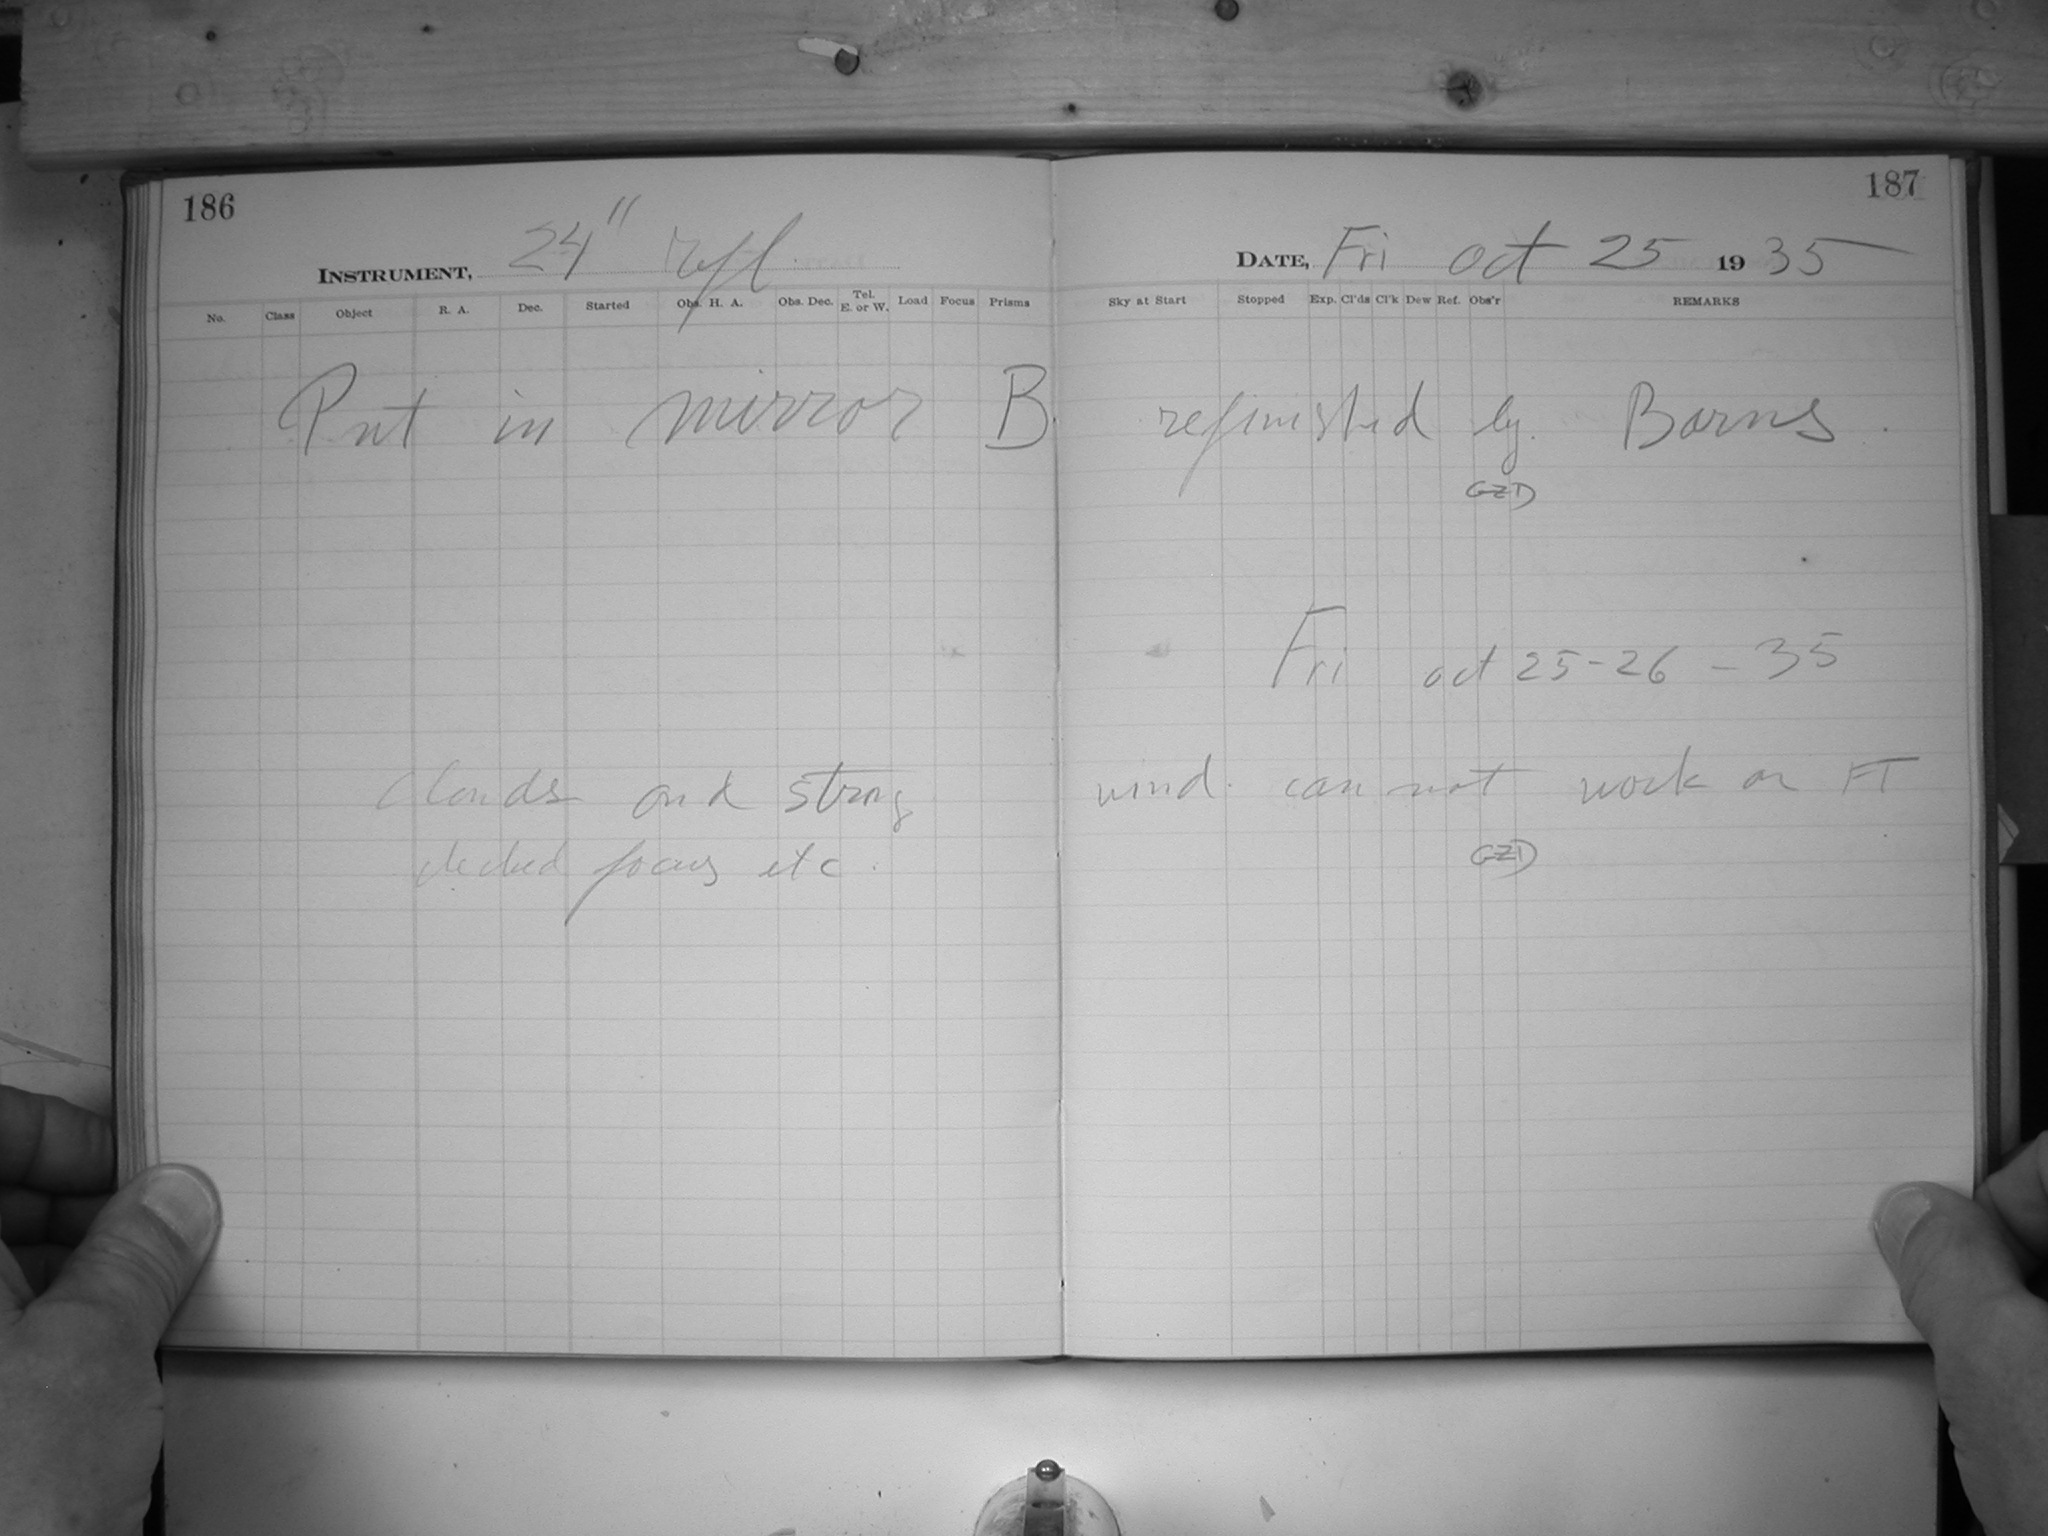 186
187
INSTRUMENT, 24" rfl.
DATE, Fri Oct 25 1935
No. Class Object R. A. Dec. Started Obs. H. A. Obs. Dec. Tel. E. or W. Load Focus Prisms Sky at Start Stopped Exp. Cl'ds Cl'k Dew Ref. Obs'r REMARKS
Put in mirror B. refinished by Barns.
GZD
Fri Oct 25-26-35
Clouds and strong wind. can not work on FT
checked focus etc.
GZD